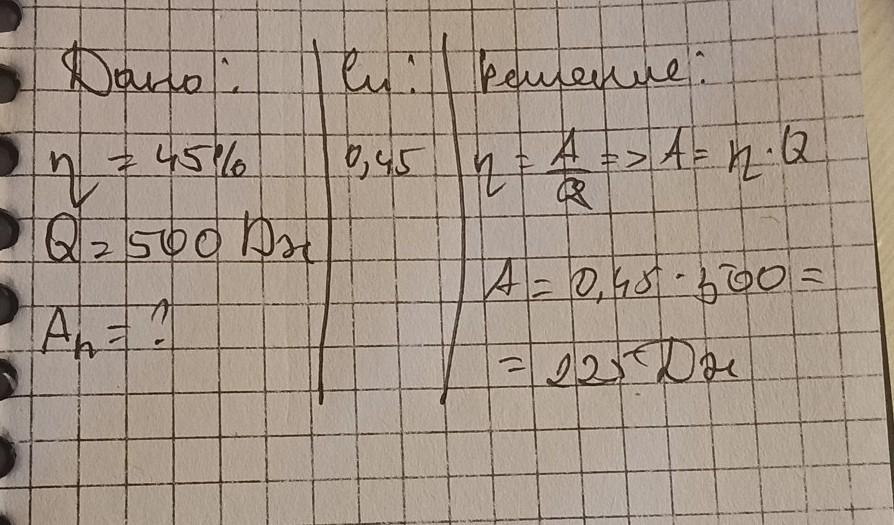 Дано:
η = 45%
Q = 500 Дж
Aп = ?
Си:
0,45
Решение:
η = A/Q => A = η · Q
A = 0,45 · 500 =
= 225 Дж